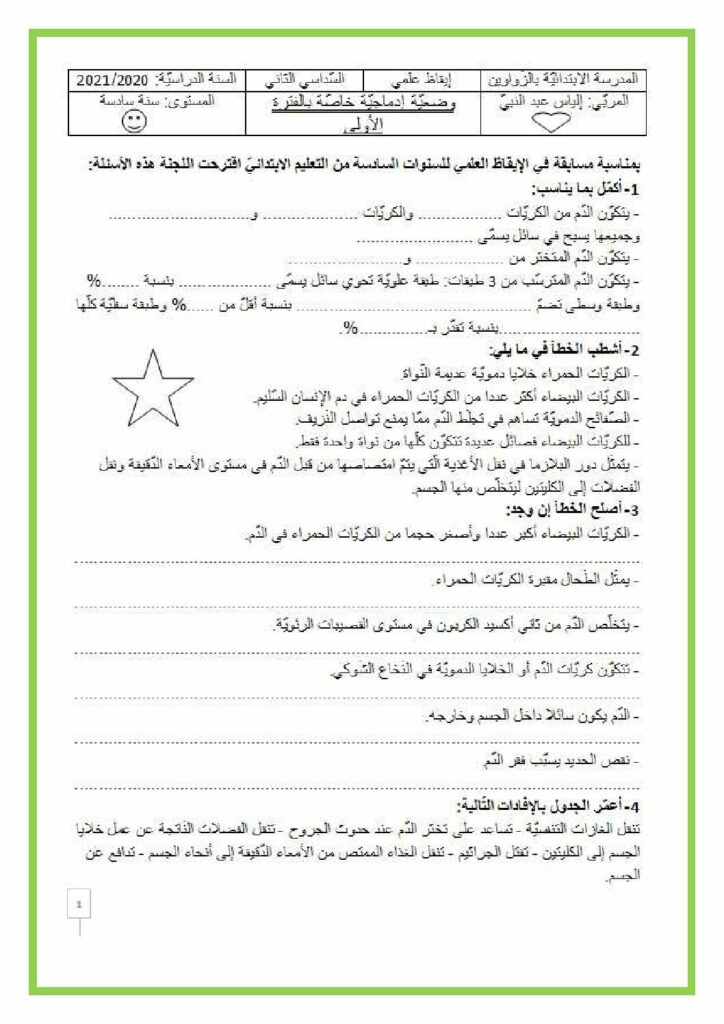 المدرسة الابتدائيّة بالزّواوين
إيقاظ علمي
السّداسي الثّاني
السنة الدراسيّة: 2021/2020
المربّي: إلياس عبد النبيّ
وضعيّة إدماجيّة خاصّة بالفترة
الأولى
المستوى: سنة سادسة
بمناسبة مسابقة في الإيقاظ العلمي للسنوات السادسة من التعليم الابتدائيّ اقترحت اللجنة هذه الأسئلة:
1- أكمّل بما يناسب:
- يتكوّن الدّم من الكريّات .................. والكريّات .................... و..............................
وجميعها يسبح في سائل يسمّى .........................
- يتكوّن الدّم المتخثر من ................... و ........................
- يتكوّن الدّم المترسّب من 3 طبقات: طبقة علويّة تحوي سائل يسمّى ................... بنسبة ........%
وطبقة وسطى تضمّ .................................................. بنسبة أقلّ من ......% وطبقة سفليّة كلّها
..............................بنسبة تقدّر بـ..............%.
2- أشطب الخطأ في ما يلي:
- الكريّات الحمراء خلايا دمويّة عديمة النّواة.
- الكريّات البيضاء أكثر عددا من الكريّات الحمراء في دم الإنسان السّليم.
- الصّفائح الدمويّة تساهم في تجلّط الدّم ممّا يمنع تواصل النّزيف.
- للكريّات البيضاء فصائل عديدة تتكوّن كلّها من نواة واحدة فقط.
- يتمثّل دور البلازما في نقل الأغذية الّتي يتمّ امتصاصها من قبل الدّم في مستوى الأمعاء الدّقيقة ونقل
الفضلات إلى الكليتين ليتخلّص منها الجسم.
3- أصلح الخطأ إن وجد:
- الكريّات البيضاء أكبر عددا وأصغر حجما من الكريّات الحمراء في الدّم.
................................................................................
- يمثّل الطّحال مقبرة الكريّات الحمراء.
................................................................................
- يتخلّص الدّم من ثاني أكسيد الكربون في مستوى القصيبات الرئويّة.
................................................................................
- تتكوّن كريّات الدّم أو الخلايا الدمويّة في النّخاع الشّوكي.
................................................................................
- الدّم يكون سائلا داخل الجسم وخارجه.
................................................................................
- نقص الحديد يسبّب فقر الدّم.
................................................................................
4- أعمّر الجدول بالإفادات التّالية:
تنقل الغازات التنفسيّة - تساعد على تخثر الدّم عند حدوث الجروح - تنقل الفضلات النّاتجة عن عمل خلايا
الجسم إلى الكليتين - تقتل الجراثيم - تنقل الغذاء الممتص من الأمعاء الدّقيقة إلى أنحاء الجسم - تدافع عن
الجسم.
1